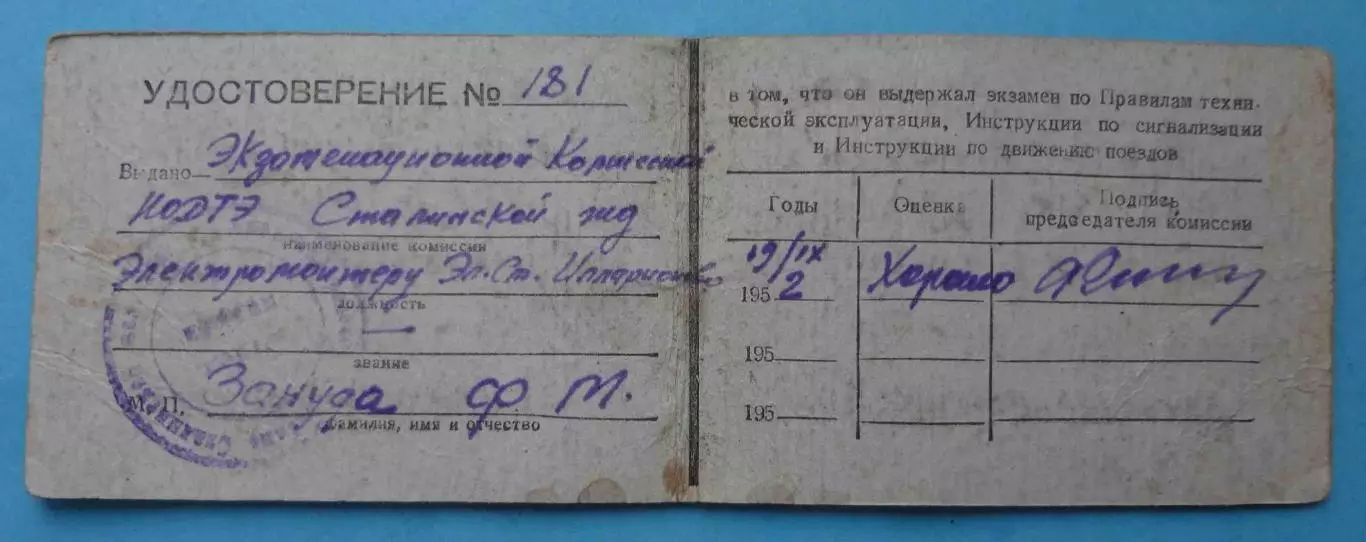 УДОСТОВЕРЕНИЕ № 181
Выдано Экзаменационной Комиссией
НОДТЭ Сталинской жд
наименование комиссии
Электромонтеру Эл. Ст. Илларионово
должность
—
звание
М. П.
Ф М.
фамилия, имя и отчество
в том, что он выдержал экзамен по Правилам техни-
ческой эксплуатации, Инструкции по сигнализации
и Инструкции по движению поездов
Годы Оценка Подпись
председателя комиссии
19/IX
1952 Хорошо
195
195